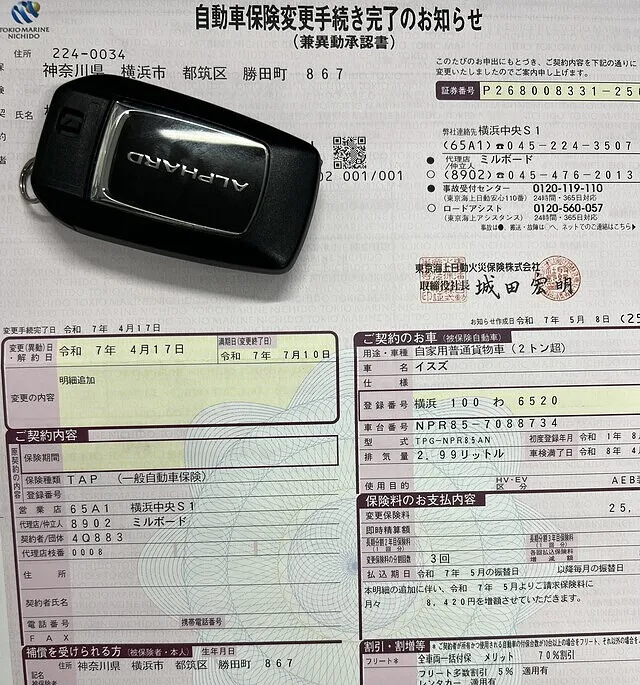 TOKIO MARINE
NICHIDO
自動車保険変更手続き完了のお知らせ
(兼異動承認書)
住所 224-0034
神奈川県 横浜市 都筑区 勝田町 867
氏名
ALPHARD
02 001/001
このたびのお申出にもとづき、ご契約内容を下記の通りに
変更いたしましたのでご案内申し上げます。
証券番号 P268008331-256
弊社連絡先 横浜中央S1
(65A1) ☎045-224-3507
代理店/仲立人 ミルボード
(8902) ☎045-476-2013
● 事故受付センター 0120-119-110
(東京海上日動安心110番) 24時間・365日対応
○ ロードアシスト 0120-560-057
(東京海上アシスタンス) 24時間・365日対応
東京海上日動火災保険株式会社
取締役社長 城田宏明
お知らせ作成日 令和 7年 5月 8日 (25
変更手続完了日 令和 7年 4月17日
変更(異動)日・解約日 令和 7年 4月17日
満期日(変更終了日) 令和 7年 7月10日
変更の内容 明細追加
ご契約内容
保険期間
保険種類 TAP (一般自動車保険)
登録番号
営業店 65A1 横浜中央S1
代理店/仲立人 8902 ミルボード
契約者/団体 4Q883
代理店枝番 0008
住所
契約者氏名
電話番号 携帯電話番号
FAX
補償を受けられる方 (被保険者・本人) 生年月日
住所 神奈川県 横浜市 都筑区 勝田町 867
記名
ご契約のお車 (被保険自動車)
用途・車種 自家用普通貨物車(2トン超)
車名 イスズ
仕様
登録番号 横浜 100 わ 6520
車台番号 NPR85-7088734
型式 TPG-NPR85AN 初度登録年月 令和 1年 8
排気量 2.99リットル 車検満了日 令和 8年 4
使用目的 HV・EV区分 AEB
保険料のお支払内容
変更保険料 25,
即時精算額
変更保険料の分割回数 3回
払込期日 令和 7年 5月の振替日 以降毎月の振替日
本明細の追加に伴い、令和 7年 5月よりご請求保険料に
月々 8,420円を増額させていただきます。
割引・割増等
フリート* 全車両一括付保 メリット 70%割引
フリート多数割引 5% 適用有
レンタカー 適用有